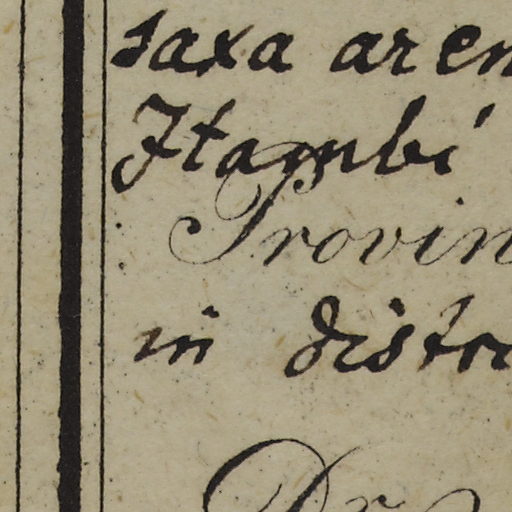 saxa aren
Itambi
Provin
in distri
Dr